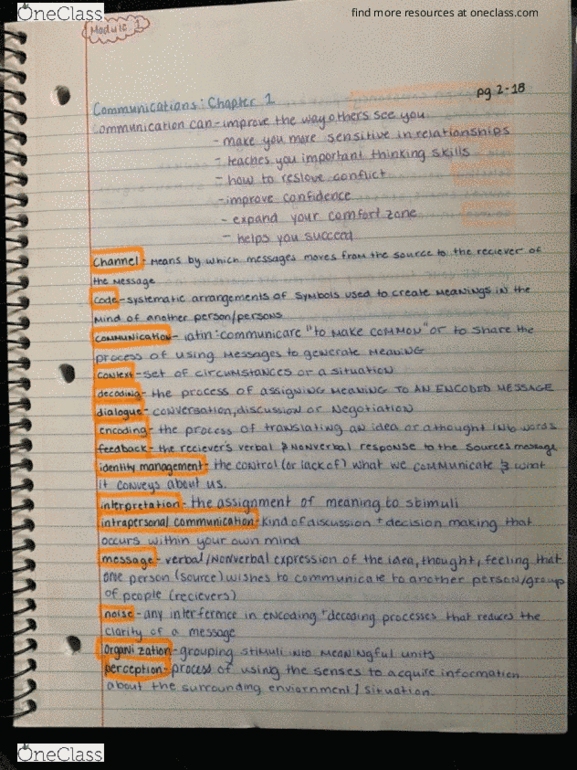 OneClass
find more resources at oneclass.com
Module 1
pg 2-18
Communications: Chapter 1
Communication can - improve the way others see you
- make you more sensitive in relationships
- teaches you important thinking skills
- how to reslove conflict
- improve confidence
- expand your comfort zone
- helps you succeed
Channel - Means by which messages moves from the source to the reciever of
the message
Code - systematic arrangements of symbols used to create meanings in the
mind of another person/persons
communication - latin: communicare "to make common" or to share the
process of using messages to generate meaning
context - set of circumstances or a situation
decoding - the process of assigning meaning to an encoded message
dialogue - conversation, discussion or negotiation
encoding - the process of translating an idea or a thought into words
feedback - the reciever's verbal & nonverbal response to the sources message
identity management - the control (or lack of) what we communicate &
it conveys about us.
interpretation - the assignment of meaning to stimuli
intrapersonal communication - kind of discussion + decision making that
occurs within your own mind
message - verbal/nonverbal expression of the idea, thought, feeling that
one person (source) wishes to communicate to another person/group
of people (recievers)
noise - any interfernce in encoding + decoding processes that reduces the
clarity of a message
Organization - grouping stimuli into meaningful units
perception - process of using the senses to acquire information
about the surrounding enviornment / situation.
OneClass